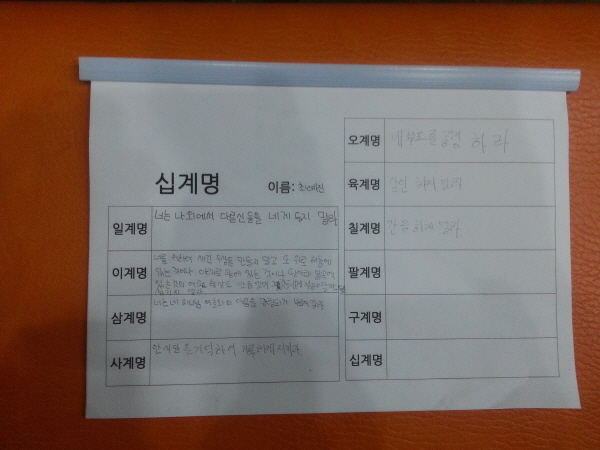 십계명
이름: 최예진
일계명
너는 나 외에서 다른신들를 네게 두지 말라
이계명
너를 위하여 새긴 우상을 만들지 말고 또 위로 하늘에
있는 것이나 아래로 땅에 있는 것이나 땅아래 물속에
있는 것의
삼계명
너는 네 하나님 여호와의 이름을 망령되게 부르지 말라
사계명
안식일을 기억하여 거룩하게 지키라
오계명
네 부모를 공경 하라
육계명
살인 하지 말라
칠계명
간음 하지 말라
팔계명
구계명
십계명